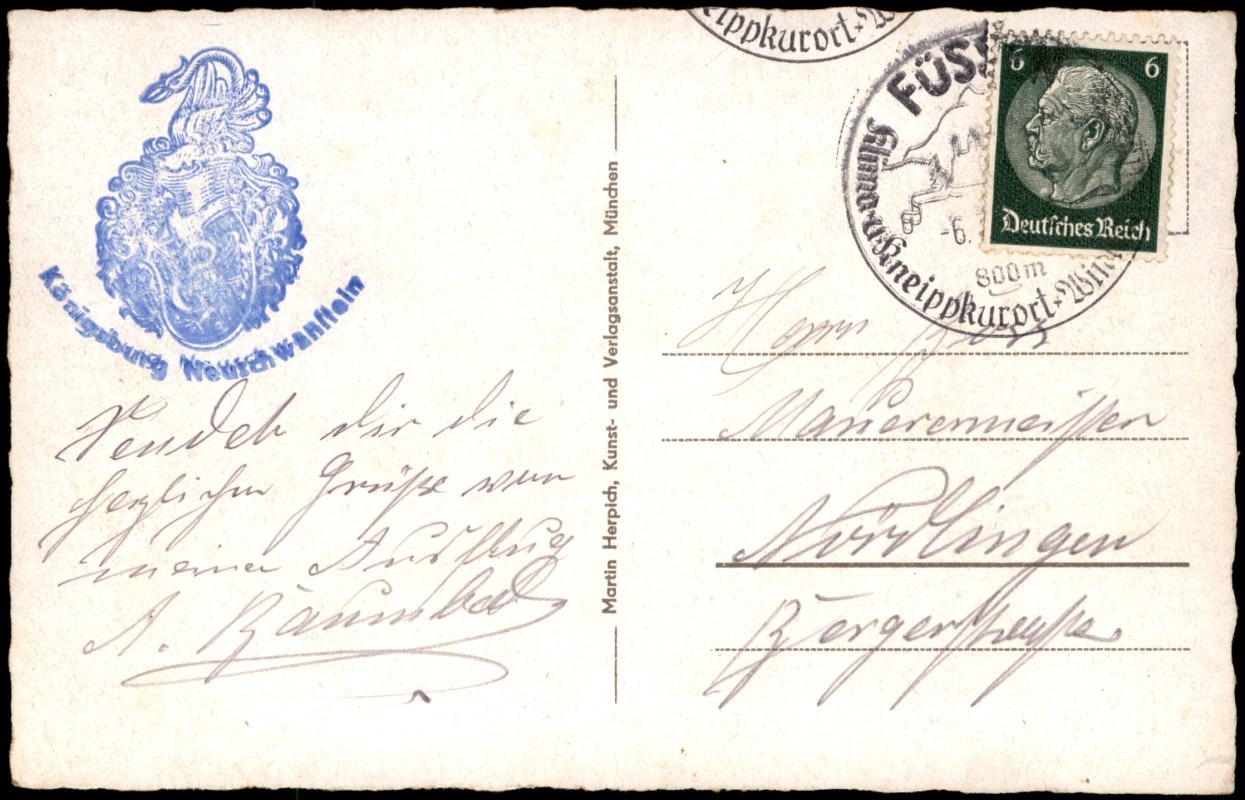 Königsburg Neuschwanstein
Sendet dir die
herzlichen Grüße von
meinen Ausflug
A.
Martin Herpich, Kunst- und Verlagsanstalt, München
neippkurort
FÜSS
Klima-u.Kneippkurort
-6.
800m
6 6
Deutsches Reich
Herrn
Maurermeister
Nördlingen
Bergerstraße